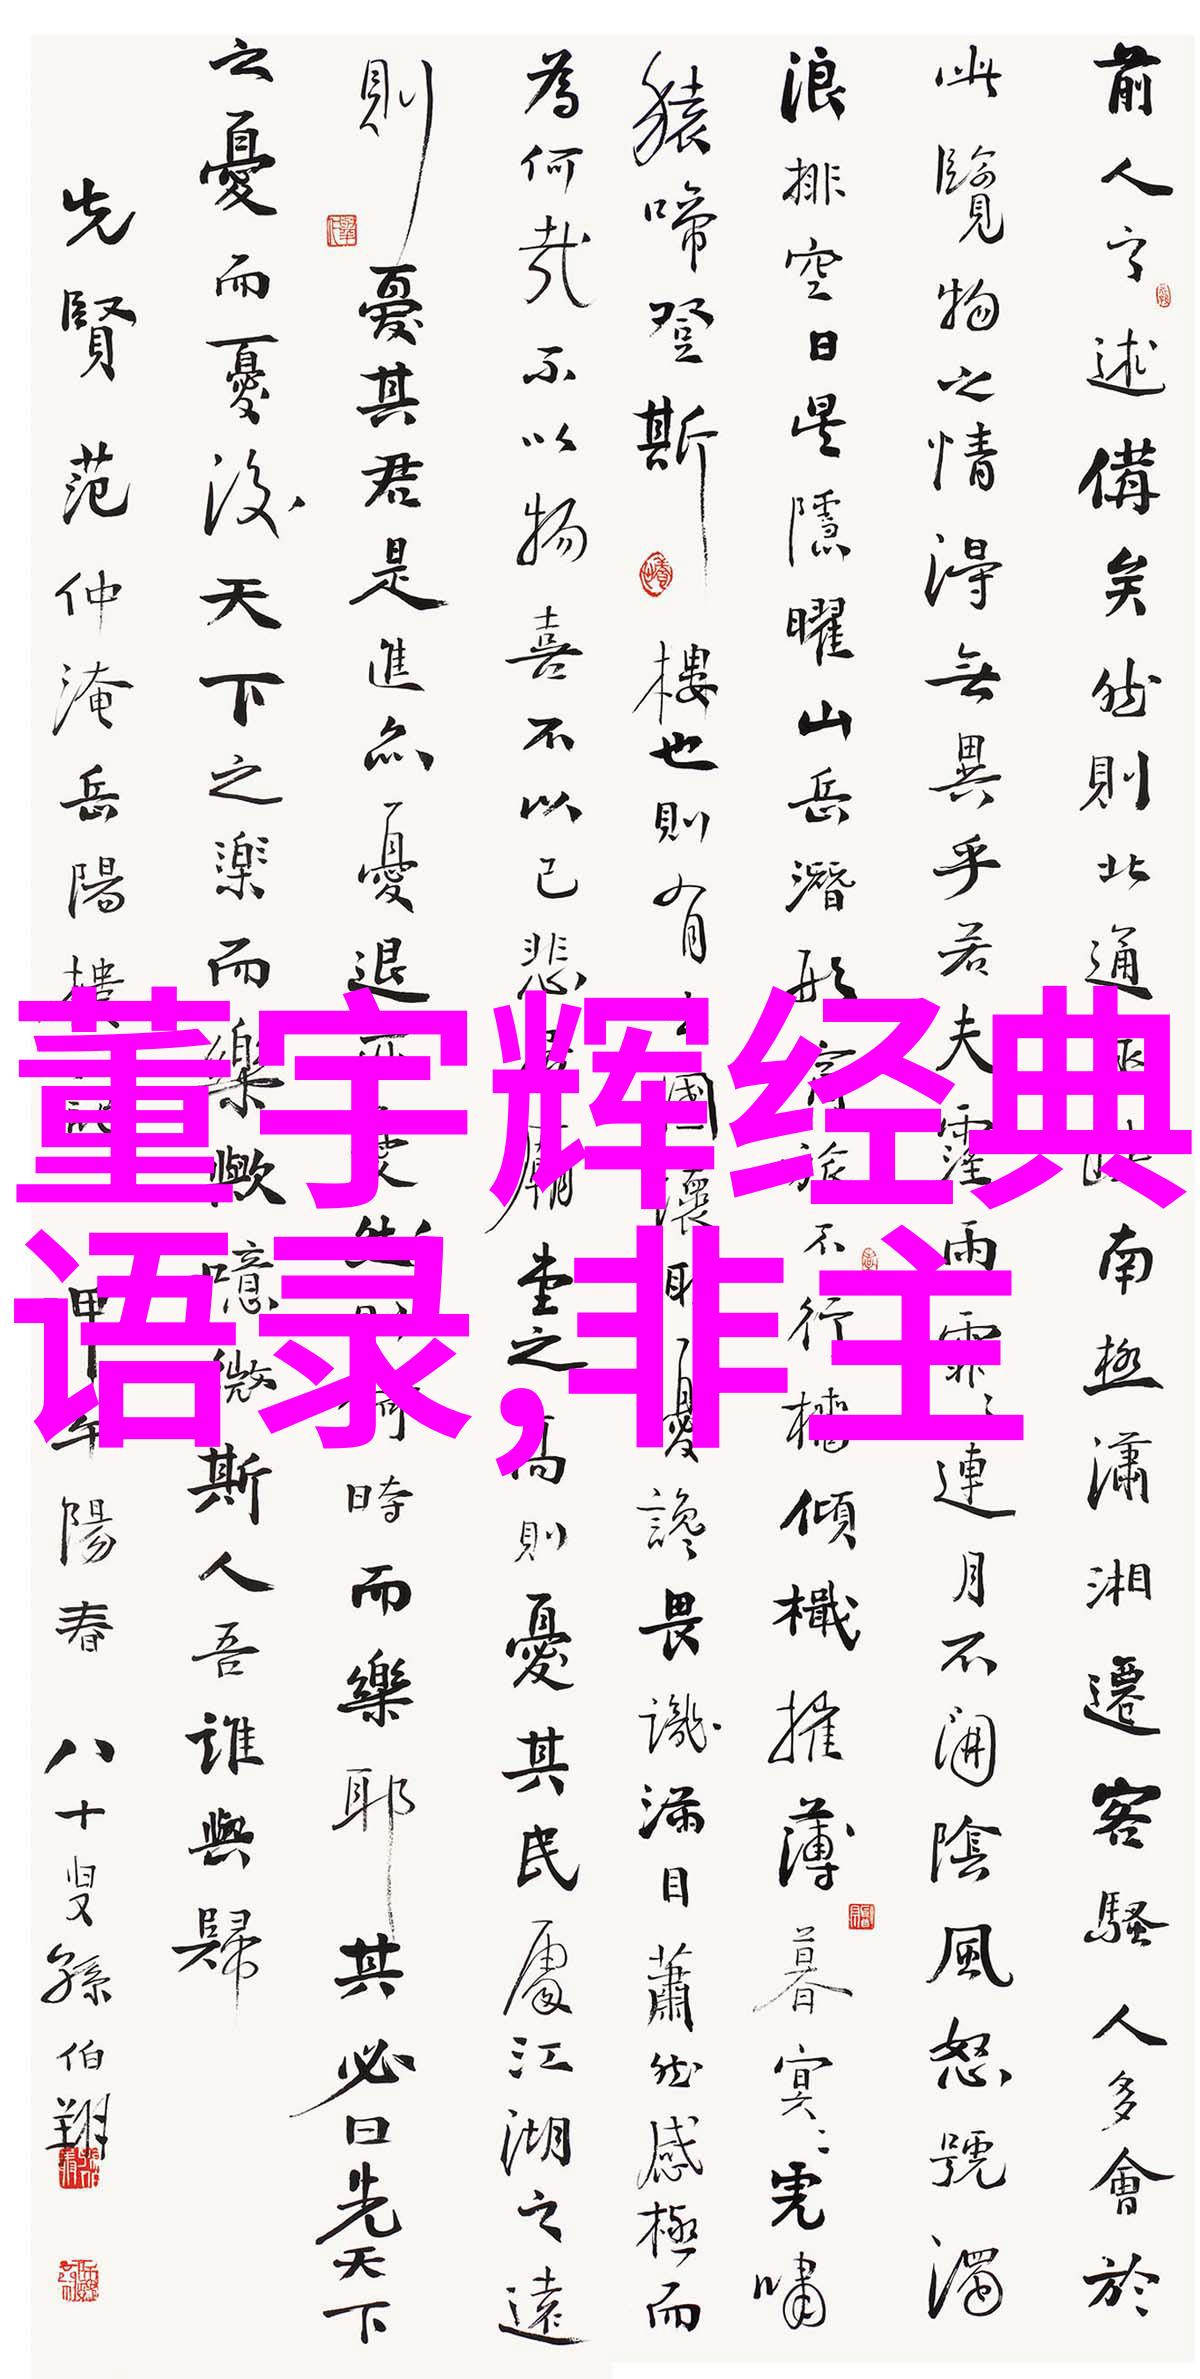 董宇辉经典
语录,非主
前人述備矣然則北通南極瀟湘遷客騷人多會於
此覽物之情得無異乎若夫霪雨霏〻連月不開陰風怒號濁
浪排空日星隱曜山岳潛形商旅不行檣傾檝摧薄暮冥〻虎嘯
猿啼登斯樓也則有國懷憂讒畏譏滿目蕭然感極而
為何哉不以物喜不以己悲廟堂之高則憂其民處江湖之遠
則憂其君是進亦憂退然則何時而樂耶其必曰先天下
之憂而憂後天下之楽而樂歟噫微斯人吾誰與歸
先賢范仲淹岳陽樓 甲午陽春 八十叟孫伯翔